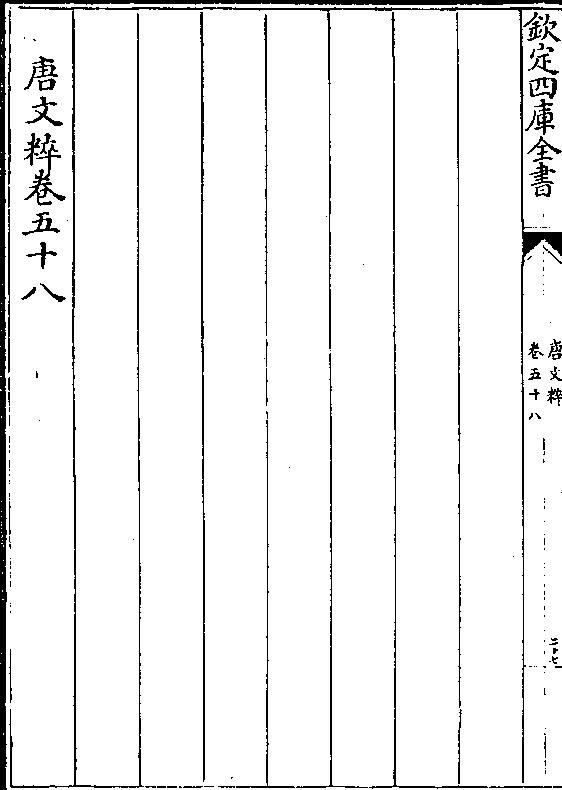 欽定四庫全書
唐文粹
卷五十八
二十七
唐文粹卷五十八